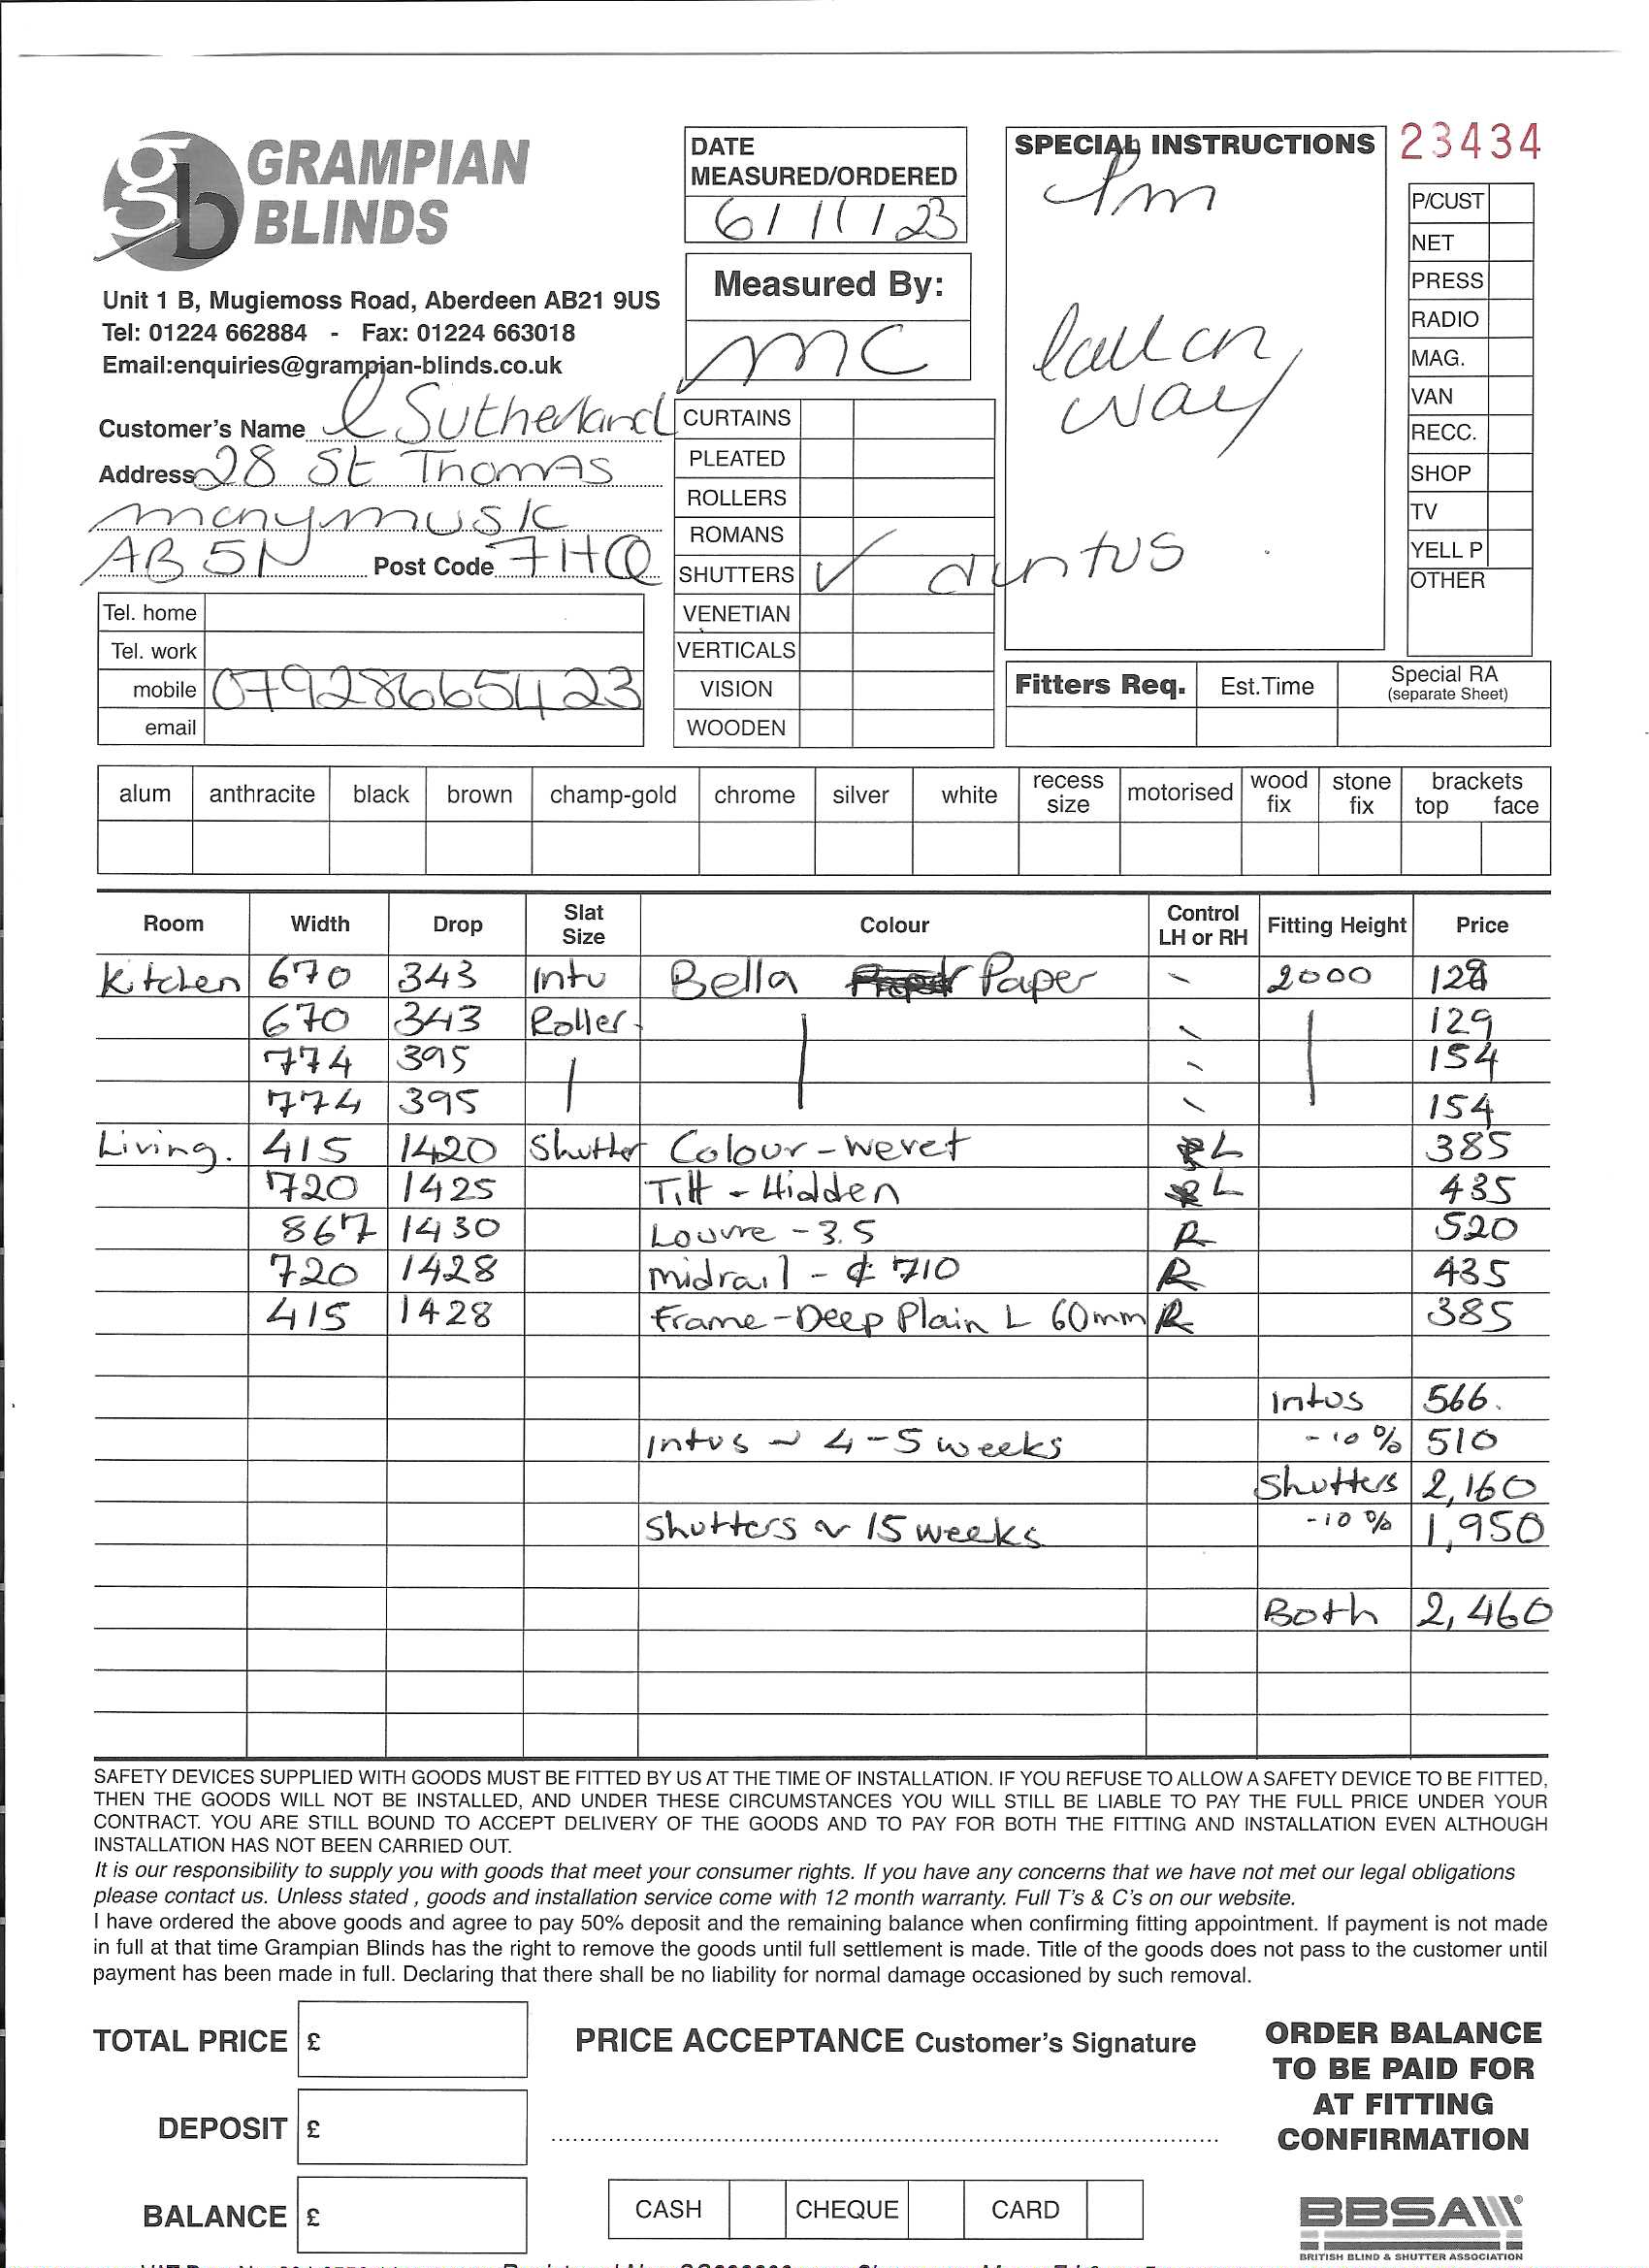 GRAMPIAN BLINDS
Unit 1 B, Mugiemoss Road, Aberdeen AB21 9US
Tel: 01224 662884 - Fax: 01224 663018
Email:enquiries@grampian-blinds.co.uk
DATE MEASURED/ORDERED
6/11/23
Measured By:
MC
SPECIAL INSTRUCTIONS
1pm
Call on
way
23434
P/CUST
NET
PRESS
RADIO
MAG.
VAN
RECC.
SHOP
TV
YELL P
OTHER
Customer's Name Sutherland
Address 28 St Thomas
monymusk
AB51 Post Code 7HQ
Tel. home
Tel. work
mobile 07928665423
email
CURTAINS
PLEATED
ROLLERS
ROMANS
SHUTTERS ✓ intus
VENETIAN
VERTICALS
VISION
WOODEN
Fitters Req. Est.Time Special RA (separate Sheet)
alum anthracite black brown champ-gold chrome silver white recess size motorised wood fix stone fix brackets top face
Room Width Drop Slat Size Colour Control LH or RH Fitting Height Price
Kitchen 670 343 Intu Bella Paper 2000 128
670 343 Roller 129
774 395 154
774 395 154
Living. 415 1420 Shutter Colour - wevet L 385
720 1425 Tilt - Hidden L 435
867 1430 Louvre - 3.5 R 520
720 1428 midrail - ¢ 710 R 435
415 1428 Frame - Deep Plain L 60mm R 385
Intus 566.
Intus ~ 4-5 weeks -10% 510
Shutters 2,160
Shutters ~ 15 weeks -10% 1,950
Both 2,460
SAFETY DEVICES SUPPLIED WITH GOODS MUST BE FITTED BY US AT THE TIME OF INSTALLATION. IF YOU REFUSE TO ALLOW A SAFETY DEVICE TO BE FITTED,
THEN THE GOODS WILL NOT BE INSTALLED, AND UNDER THESE CIRCUMSTANCES YOU WILL STILL BE LIABLE TO PAY THE FULL PRICE UNDER YOUR
CONTRACT. YOU ARE STILL BOUND TO ACCEPT DELIVERY OF THE GOODS AND TO PAY FOR BOTH THE FITTING AND INSTALLATION EVEN ALTHOUGH
INSTALLATION HAS NOT BEEN CARRIED OUT.
It is our responsibility to supply you with goods that meet your consumer rights. If you have any concerns that we have not met our legal obligations
please contact us. Unless stated , goods and installation service come with 12 month warranty. Full T's & C's on our website.
I have ordered the above goods and agree to pay 50% deposit and the remaining balance when confirming fitting appointment. If payment is not made
in full at that time Grampian Blinds has the right to remove the goods until full settlement is made. Title of the goods does not pass to the customer until
payment has been made in full. Declaring that there shall be no liability for normal damage occasioned by such removal.
TOTAL PRICE £
PRICE ACCEPTANCE Customer's Signature
ORDER BALANCE
TO BE PAID FOR
AT FITTING
CONFIRMATION
DEPOSIT £
BALANCE £
CASH CHEQUE CARD
BBSA
BRITISH BLIND & SHUTTER ASSOCIATION